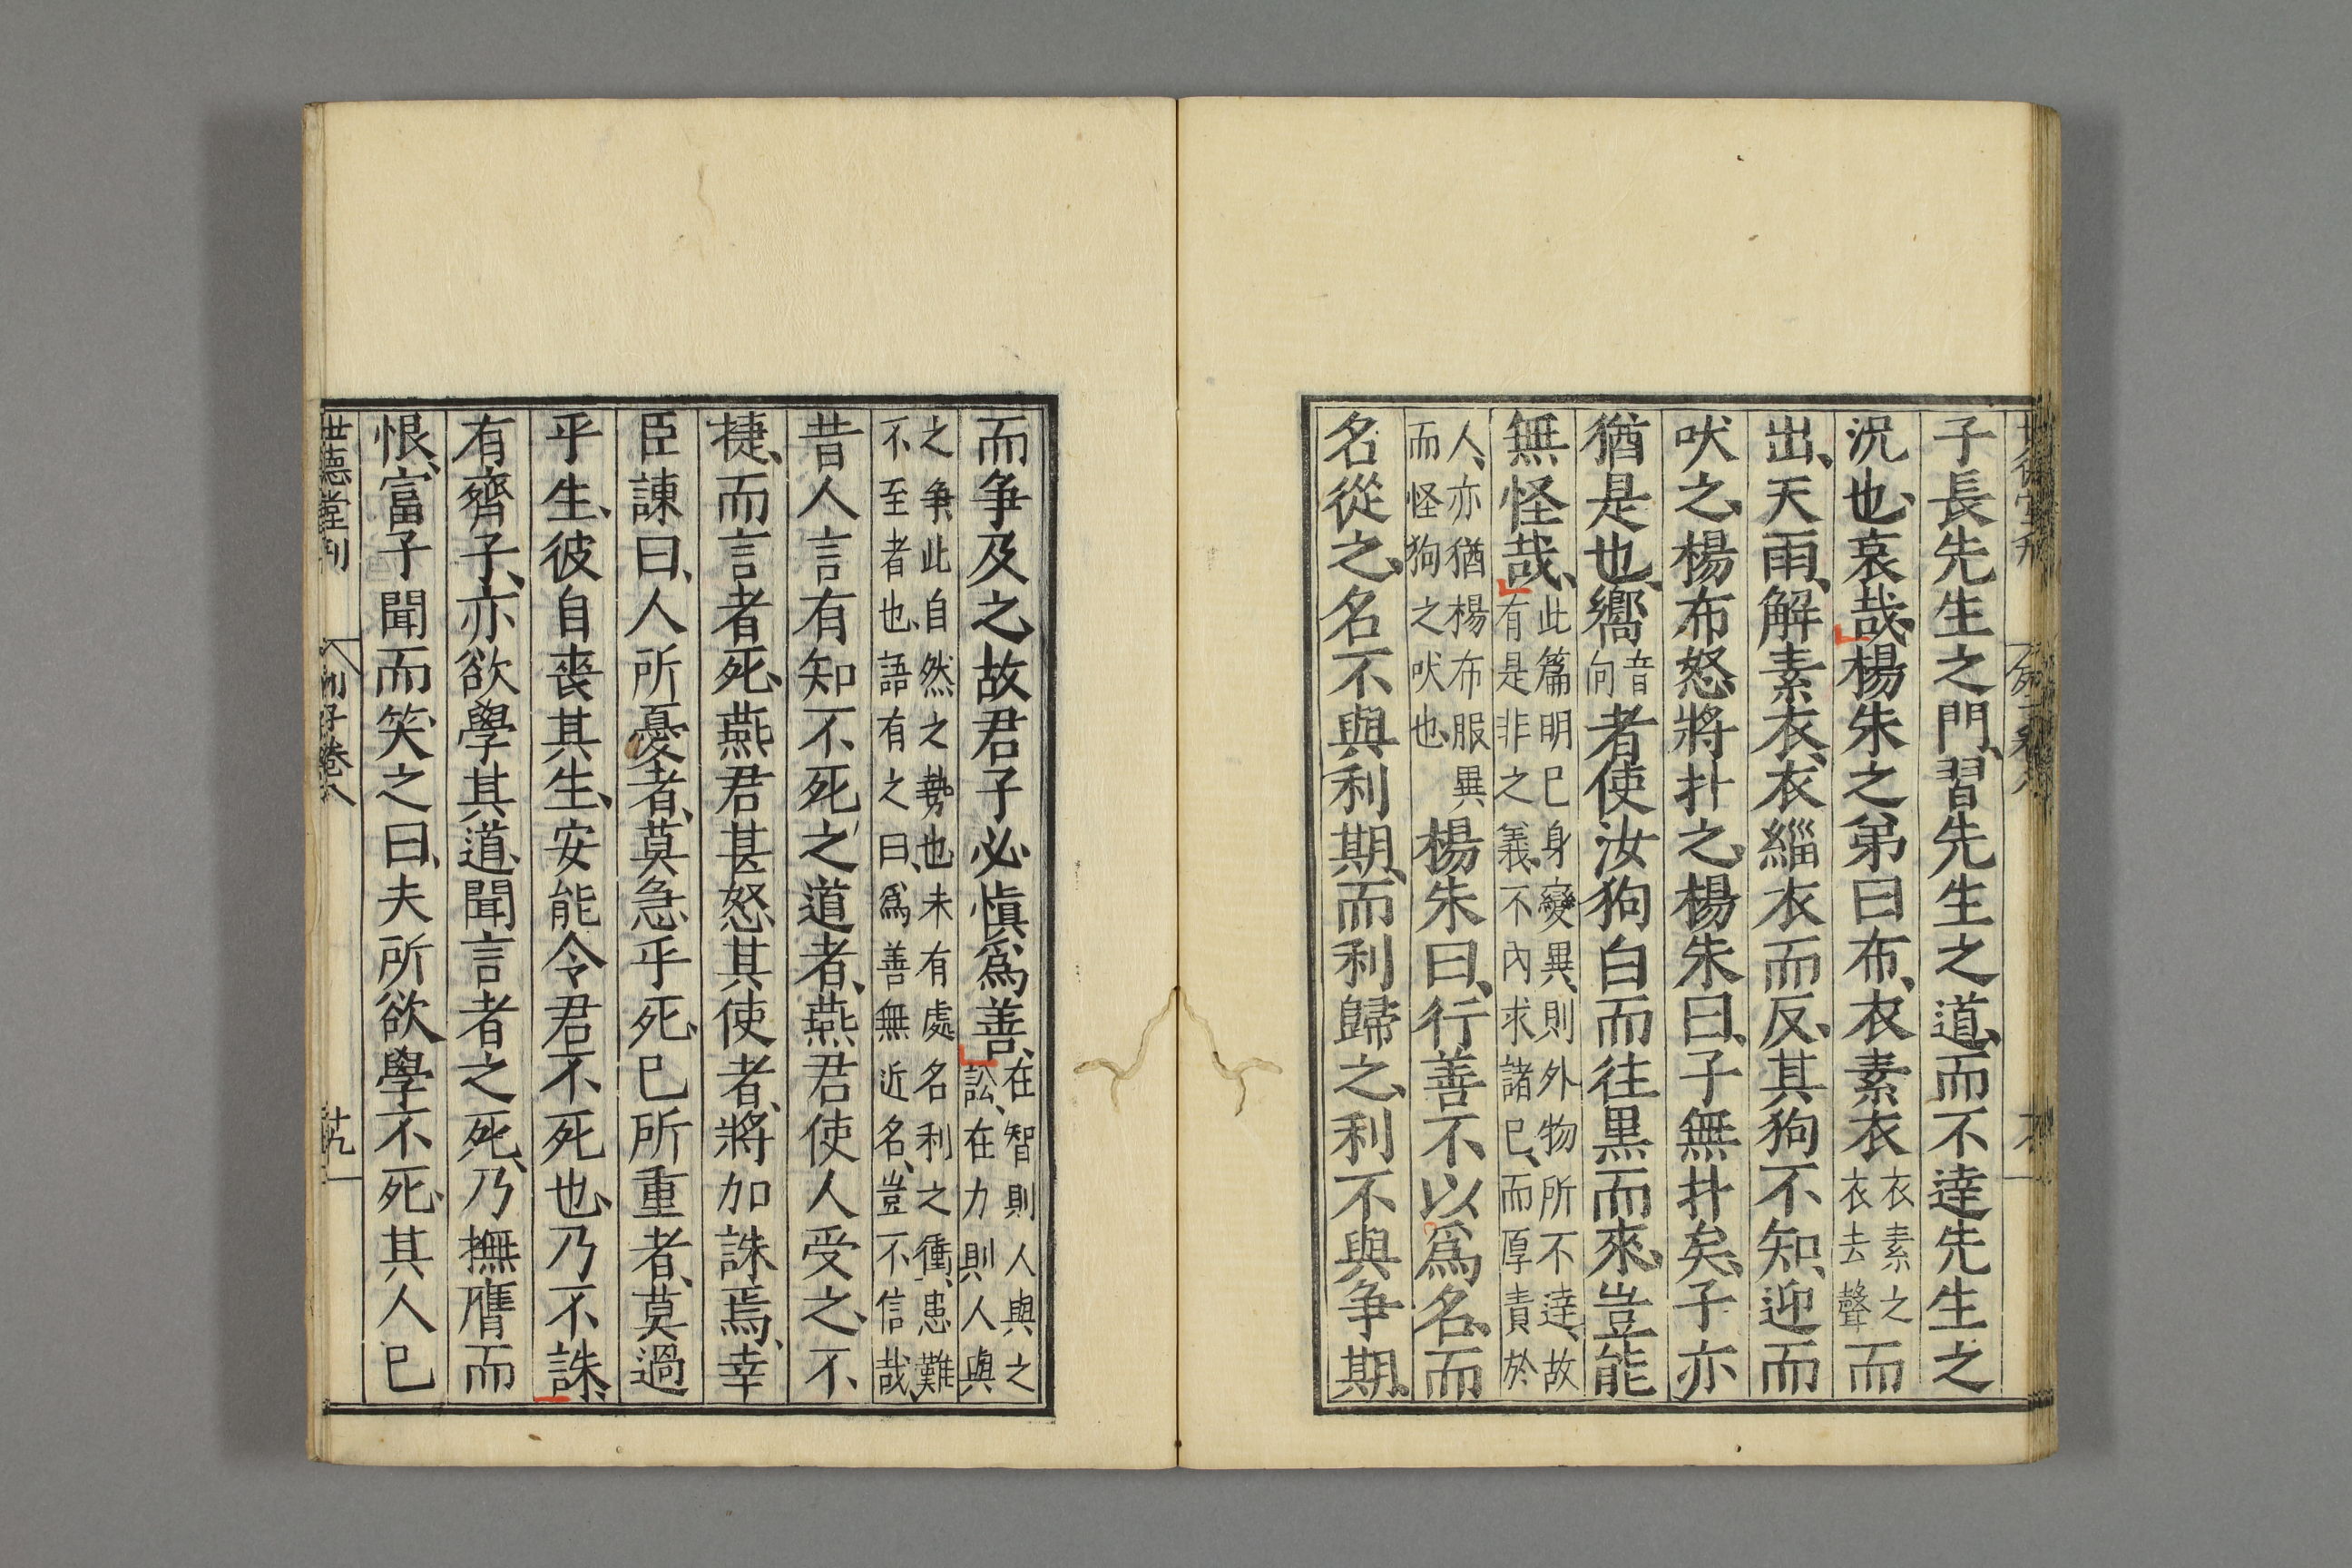 子長先生之門、習先生之道、而不達先生之
況也、哀哉、楊朱之弟曰布、衣素衣衣素之衣去聲而
出、天雨、解素衣、衣緇衣而反、其狗不知、迎而
吠之、楊布怒、將扑之、楊朱曰、子無扑矣、子亦
猶是也、嚮音向者使汝狗白而往黒而來、豈能
無怪哉、此篇明已身變異、則外物所不達、故有是非之義、不內求諸已、而厚責於
人、亦猶楊布服異而怪狗之吠也楊朱曰、行善不以爲名、而
名從之、名不與利期、而利歸之、利不與争期、
而争及之故君子必愼爲善、在智則人與之訟、在力則人與
之争、此自然之勢也未有處名利之衝、患難不至者也、語有之曰、爲善無近名、豈不信哉、
昔人言有知不死之道者、燕君使人受之、不
捷、而言者死、燕君甚怒、其使者、將加誅焉、幸
臣諫曰、人所憂者、莫急乎死、已所重者、莫過
乎生、彼自喪其生、安能令君不死也、乃不誅、
有齊子、亦欲學其道、聞言者之死、乃撫膺而
恨、富子聞而笑之曰、夫所欲學不死、其人已
世德堂刊
列子卷八
十九